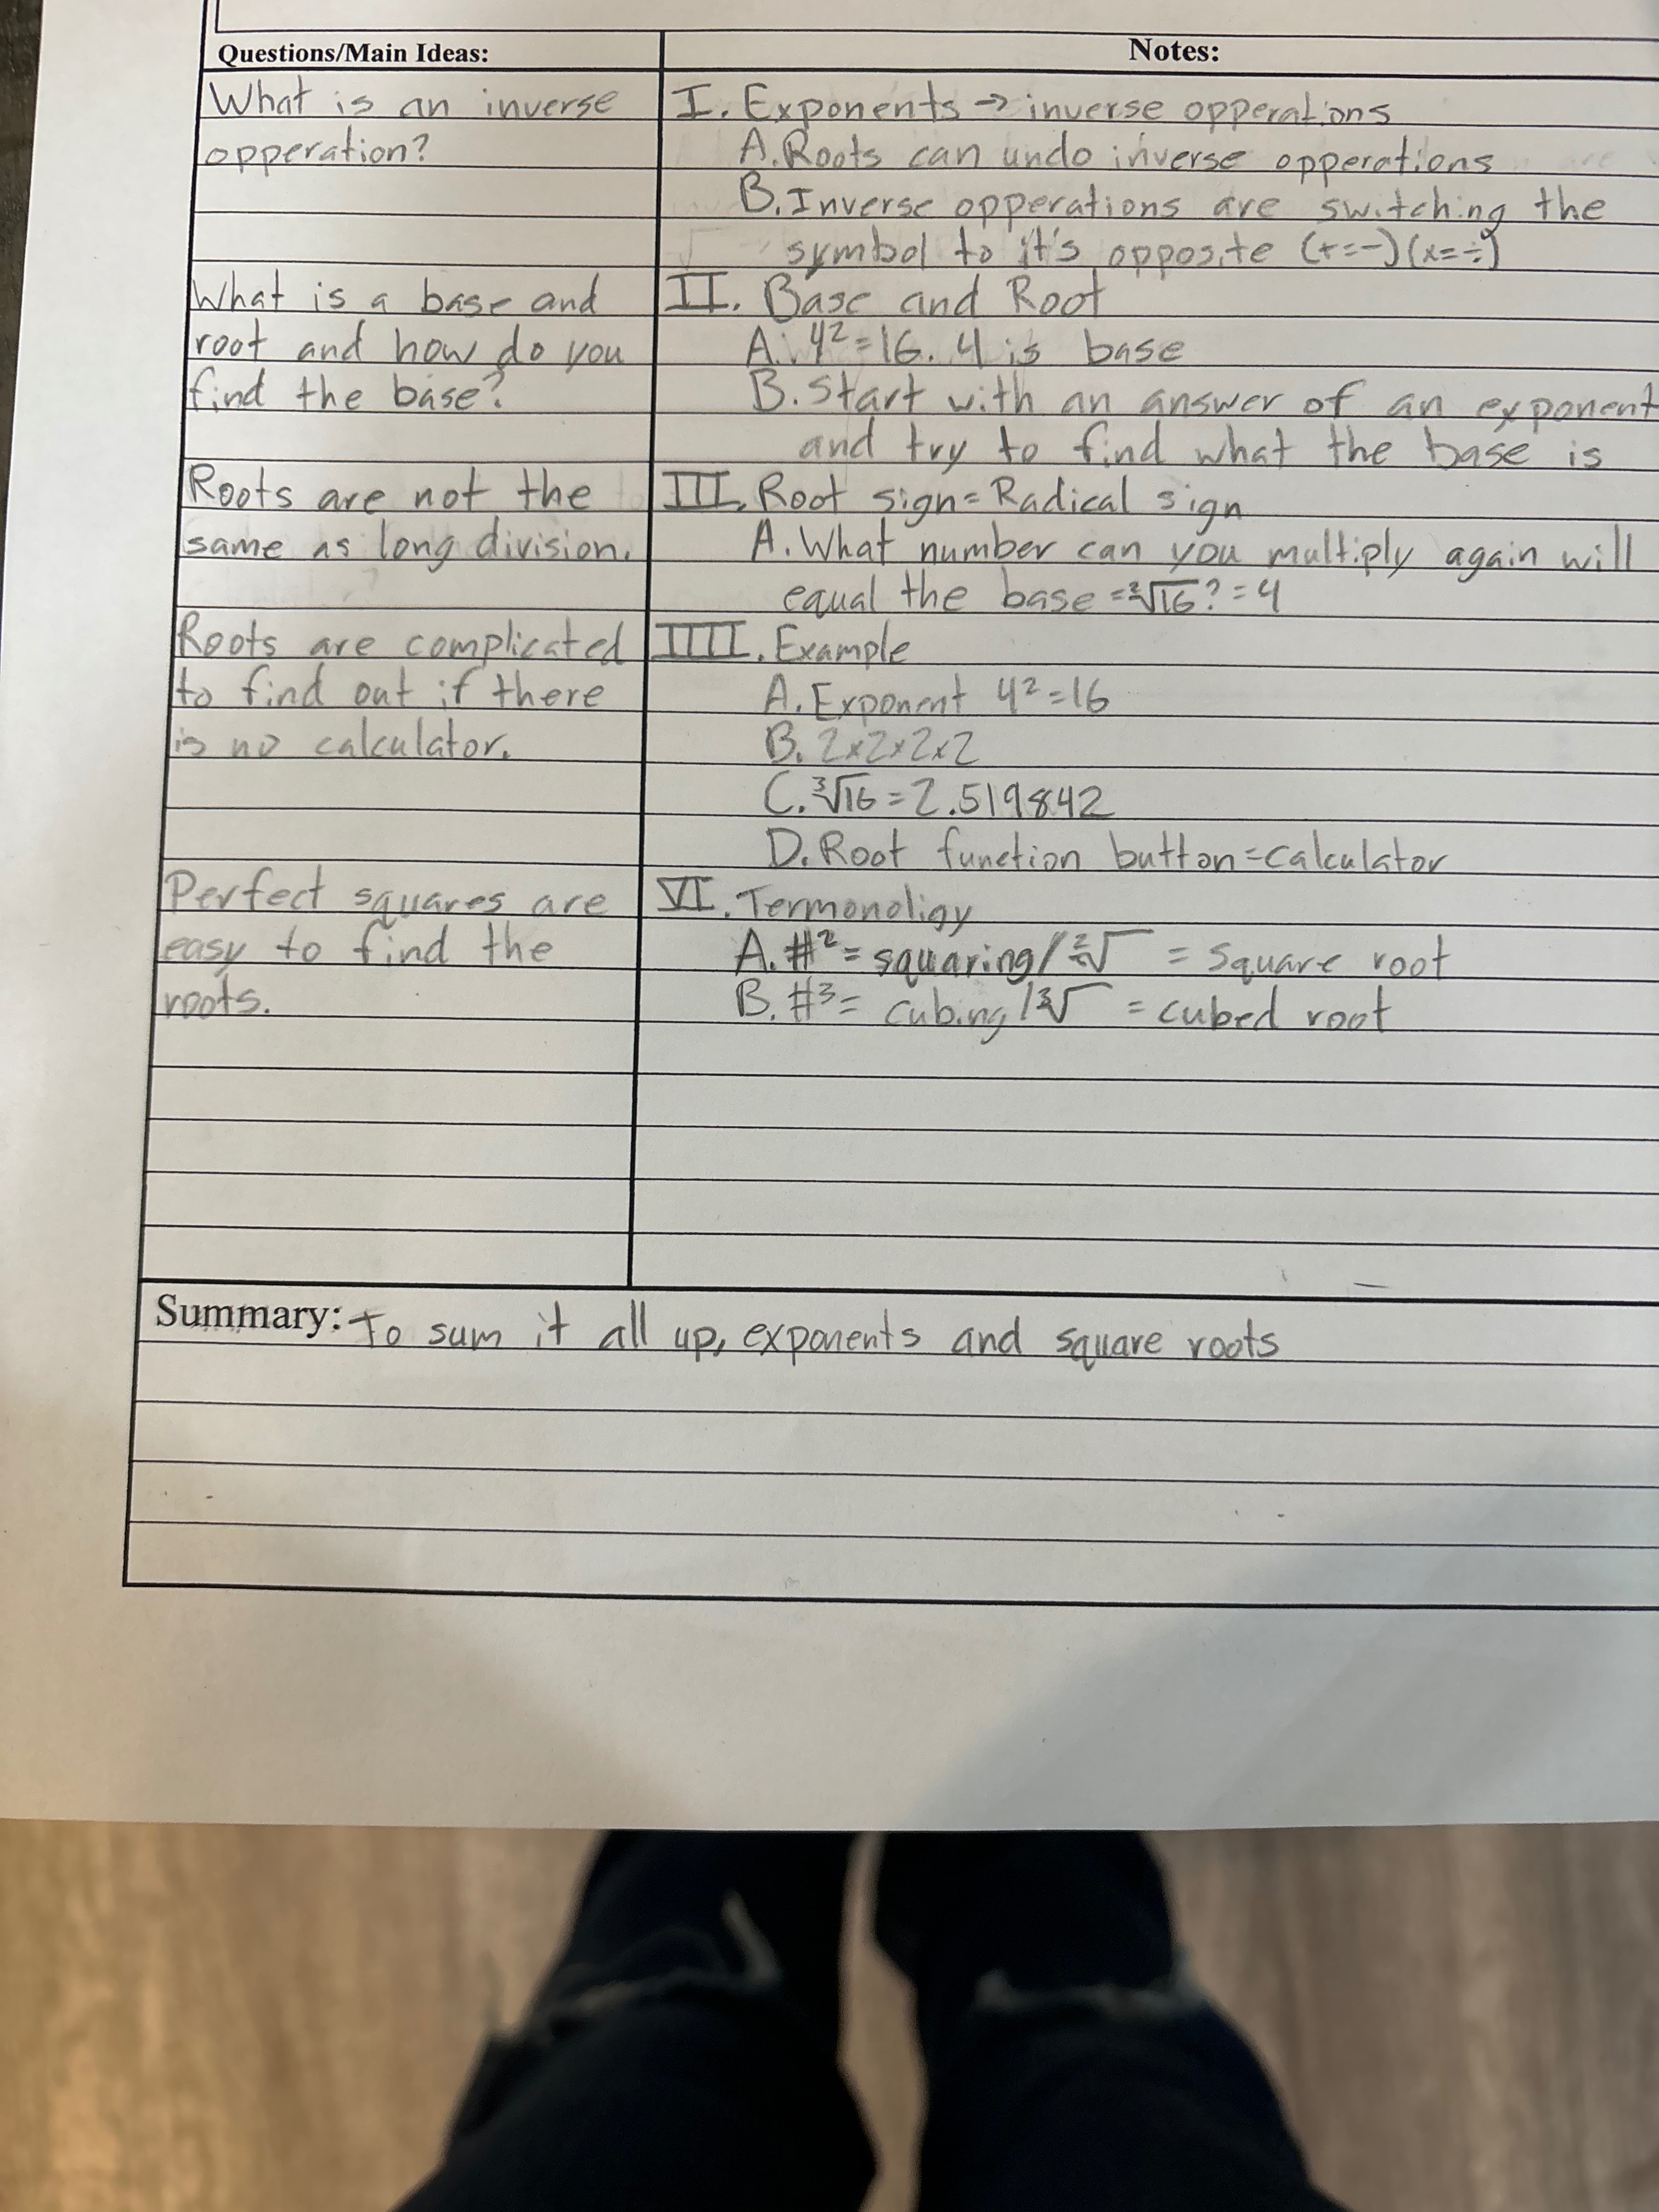 Questions/Main Ideas:
Notes:
What is an inverse
opperation?
I. Exponents → inverse opperations
A. Roots can undo inverse opperations
B. Inverse opperations are switching the
symbol to it's opposite (+=-)(x=÷)
What is a base and
root and how do you
find the base?
II. Base and Root
A. 4²=16. 4 is base
B. Start with an answer of an exponent
and try to find what the base is
Roots are not the
same as long division.
III. Root sign=Radical sign
A. What number can you multiply again will
equal the base =²√16? = 4
Roots are complicated
to find out if there
is no calculator.
IIII. Example
A. Exponent 4²=16
B. 2x2x2x2
C. ³√16 = 2.519842
D. Root function button=calculator
Perfect squares are
easy to find the
roots.
VI. Termonoligy
A. #²= squaring/²√ = square root
B. #³= cubing/³√ = cubed root
Summary: To sum it all up, exponents and square roots